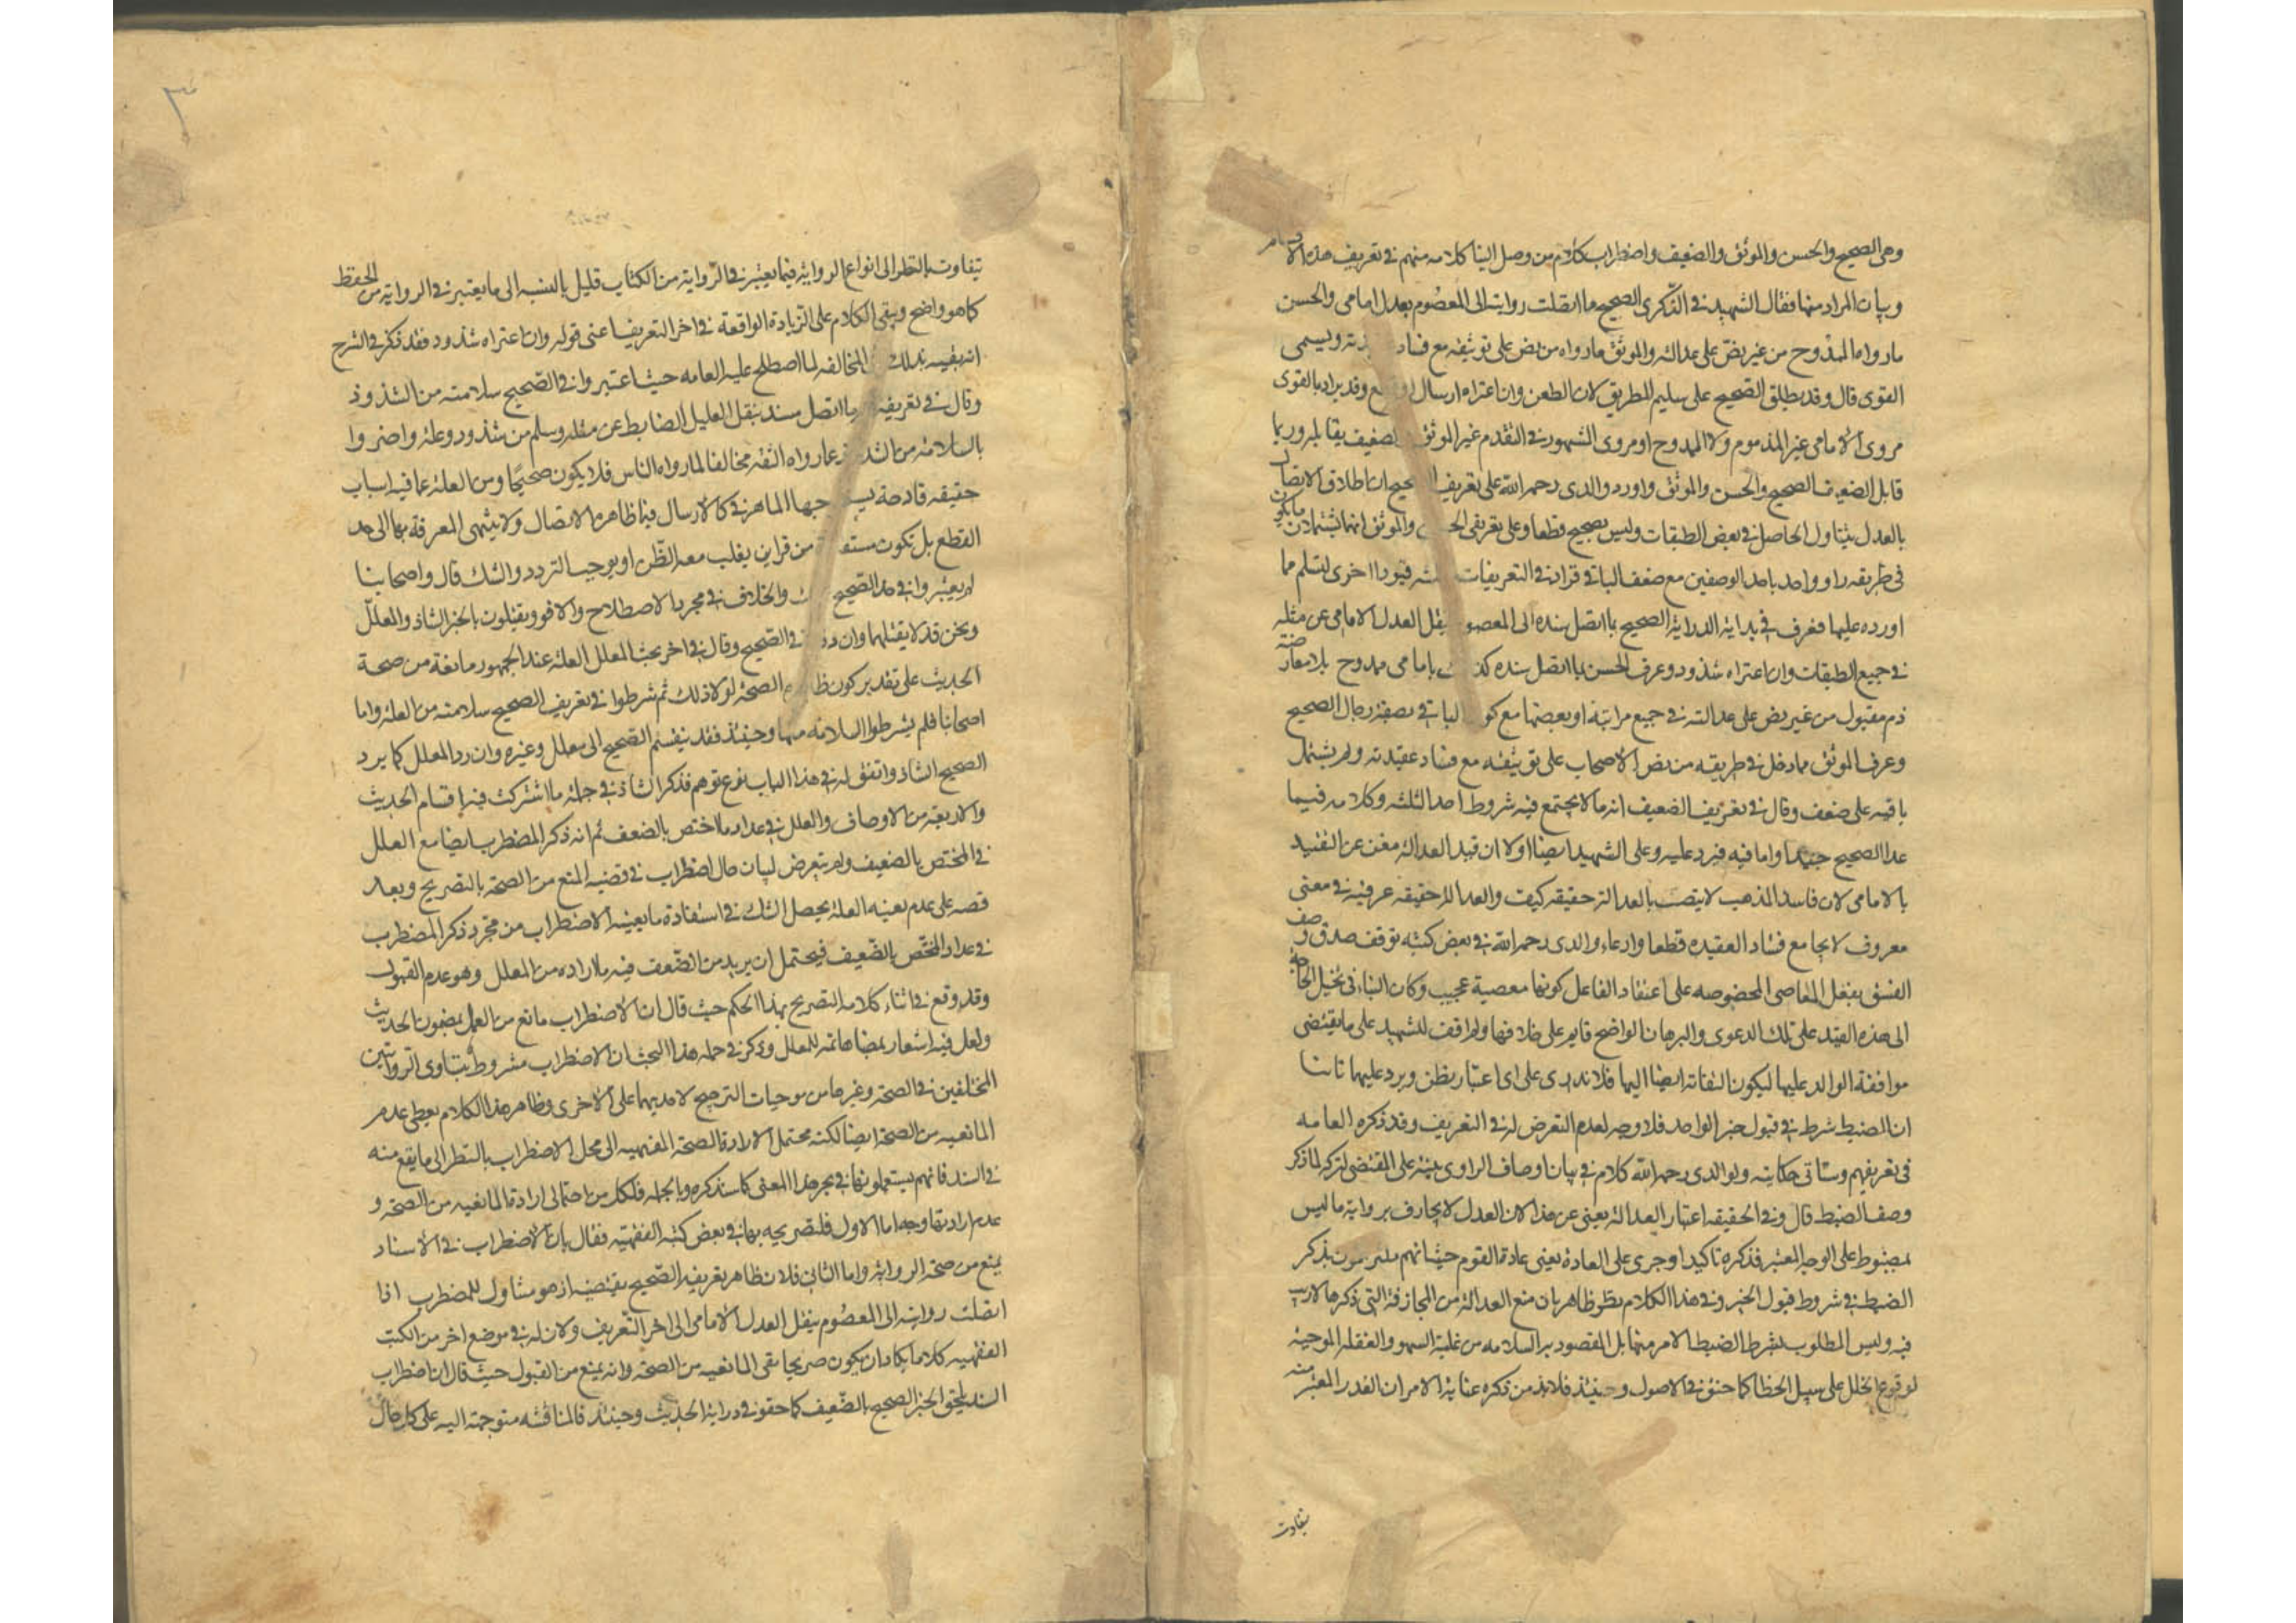 وهى الصحيح والحسن والموثق والضعيف واضطراب كلام من وصل الينا كلامه منهم فى تعريف هذه الاقسام
وبيان المراد منها فقال الشهيد فى الذكرى الصحيح ما اتصلت روايته الى المعصوم بعدل امامى والحسن
ما رواه الممدوح من غير نص على عدالته والموثق ما رواه من نص على توثيقه مع فساد ويسمى
القوى قال وقد يطلق الصحيح على سليم الطريق من الطعن وان اعتراه ارسال وقد يراد بالقوى
مروى الامامى غير المذموم ولا الممدوح او مروى المشهور فى التقدم غير الموثق يقابله وربما
قابل الضعيف الصحيح والحسن والموثق واورد والدى رحمه الله على تعريف ان اطلاق الاتصال
بالعدل يتناول الحاصل فى بعض الطبقات وليس بصحيح قطعا وعلى تعريفى والموثق انهما يشتملان ما يكون
فى طريقه راو واحد باحد الوصفين مع ضعف الباقى فزاد فى التعريفات قيودا اخرى لتسلم مما
اورده عليها فعرف فى بداية الدراية الصحيح بما اتصل سنده الى المعصوم بنقل العدل الامامى عن مثله
فى جميع الطبقات وان اعتراه شذوذ وعرف الحسن بما اتصل سنده بامامى ممدوح بلا معارضة
ذم مقبول من غير نص على عدالته فى جميع مراتبه او بعضها مع الباقى بصفة رجال الصحيح
وعرف الموثق بما دخل فى طريقه من نص الاصحاب على توثيقه مع فساد عقيدته ولم يشتمل
باقيه على ضعف وقال فى تعريف الضعيف انه ما لا يجتمع فيه شروط احد الثلثه وكلامه فيما
عدا الصحيح جيد واما فيه فيرد عليه وعلى الشهيد ايضا اولا ان قيد العدالة مغن عن التقييد
بالامامى لان فاسد المذهب لا يتصف بالعدالة حقيقه كيف والعدالة حقيقه عرفيه فى معنى
معروف لا يجامع فساد العقيده قطعا وادعاء والدى رحمه الله فى بعض كتبه توقف صدق وصف
الفسق بفعل المعاصى المخصوصه على اعتقاد الفاعل كونها معصية عجيب وكان البناء فى تخيل الحاجة
الى هذه القيد على تلك الدعوى والبرهان الواضح قايم على خلافها ولم اقف للشهيد على ما يقتضى
موافقة الوالد عليها ليكون التفاته ايضا اليها فلا ندرى على اى اعتبار بنظر ويرد عليهما ثانيا
ان الضبط شرط فى قبول خبر الواحد فلا وجه لعدم التعرض له فى التعريف وقد ذكره العامه
فى تعريفهم وستاتى حكايته ولوالدى رحمه الله كلام فى بيان اوصاف الراوى ينبه على المقتضى لتركه لما ذكر
وصف الضبط قال وفى الحقيقه اعتبار العدالة يغنى عن هذا لان العدل لا يجازف برواية ما ليس
بمضبوط على الوجه المعتبر فذكره تاكيدا وجرى على العادة يعنى عادة القوم حيث انهم ملتزمون بذكر
الضبط فى شروط قبول الخبر وفى هذا الكلام نظر ظاهر بان منع العدالة من المجازفة التى ذكرها لا ريب
فيه وليس المطلوب بشرط الضبط الامر منها بل المقصود به السلامه من غلبة السهو والغفله الموجبة
لوقوع الخلل على سبيل الخطا كما حقق فى الاصول وحينئذ فلا بد من ذكره غاية الامر ان القدر المعتبر منه
يتفاوت
يتفاوت بالنظر الى انواع الرواية فيما يعتبر فى الرواية من الكتاب قليل بالنسبه الى ما يعتبر فى الرواية من الحفظ
كما هو واضح وبقى الكلام على الزيادة الواقعة فى اخر التعريف اعنى قوله وان اعتراه شذوذ فقد ذكر فى الشرح
انه بقيد بذلك المخالفه لما اصطلح عليه العامه حيث اعتبروا فى الصحيح سلامته من الشذوذ
وقال فى تعريفه ما اتصل سنده بنقل العدل الضابط عن مثله وسلم من شذوذ وعله واحترزوا
بالسلامة من الشذوذ عما رواه الثقه مخالفا لما رواه الناس فلا يكون صحيحا ومن العلة عما فيه اسباب
خفيفه قادحة الماهر فى كالارسال فيما ظاهره الاتصال ولا ينتهى المعرفة بها الى حد
القطع بل تكون من قراين يغلب معه الظن او يوجب التردد والشك قال واصحابنا
لم يعتبروا فى حد الصحيح والخلاف فى مجرد الاصطلاح والا فقد يقبلون الخبر الشاذ والمعلل
ونحن قد لا نقبلهما وان فى الصحيح وقال فى اخر بحث المعلل العلة عند الجمهور مانعة من صحة
الحديث على تقدير كون ظاهره الصحة لولا ذلك ثم شرطوا فى تعريف الصحيح سلامته من العلة واما
اصحابنا فلم يشرطوا السلامه منها وحينئذ فقد ينقسم الصحيح الى معلل وغيره وان رد المعلل كما يرد
الصحيح الشاذ واتفق له فى هذا الباب نوع توهم فذكر الشاذ فى جملة ما اشتركت فيه اقسام الحديث
والاربعة من الاوصاف والعلل فى عداد ما اختص بالضعف ثم انه ذكر المضطرب ايضا مع العلل
فى المختص بالضعيف ولم يتعرض لبيان حال اضطراب فى قضية المنع من الصحة بالتصريح وبعد
قصه على عدم العلة يحصل الشك فى استفادة الاضطراب من مجرد ذكر المضطرب
فى عداد المختص بالضعيف فيحتمل ان يريد من الضعف فيه ما اراده من المعلل وهو عدم القبول
وقد وقع فى اثناء كلامه التصريح بهذا الحكم حيث قال ان الاضطراب مانع من العمل بمضمون الحديث
ولعل فيه اشعار بمضاهاته للمعلل وذكر فى جملة هذا البحث ان الاضطراب مشروط بتساوى الروايتين
المختلفين فى الصحة وغيرها من موجبات الترجيح لاحديهما على الاخرى وظاهر هذا الكلام يعطى عدم
المانعيه من الصحة ايضا لكنه محتمل لارادة الصحة الى محل الاضطراب بالنظر الى ما يقع منه
فى السند فانهم يستعملونها فى مجر هذا المعنى كما سنذكره وبالجملة فلكل من احتمالى ارادة المانعيه من الصحة و
عدم ارادتها وجه اما الاول فلتصريحه بها فى بعض كتبه الفقهيه فقال بان الاضطراب فى الاسناد
يمنع من صحة الرواية واما الثانى فلان ظاهر تعريفه الصحيح يقتضيه اذ هو متناول للمضطرب اذا
اتصلت روايته الى المعصوم بنقل العدل الامامى الى اخر التعريف ولان له فى موضع اخر من الكتب
الفقهيه كلاما يكاد ان يكون صريحا فى المانعيه من الصحة وانه يمنع من القبول حيث قال ان اضطراب
السند يلحق الخبر الصحيح بالضعيف كما حقق فى دراية الحديث وحينئذ فالمناقشه متوجهة اليه على كل حال